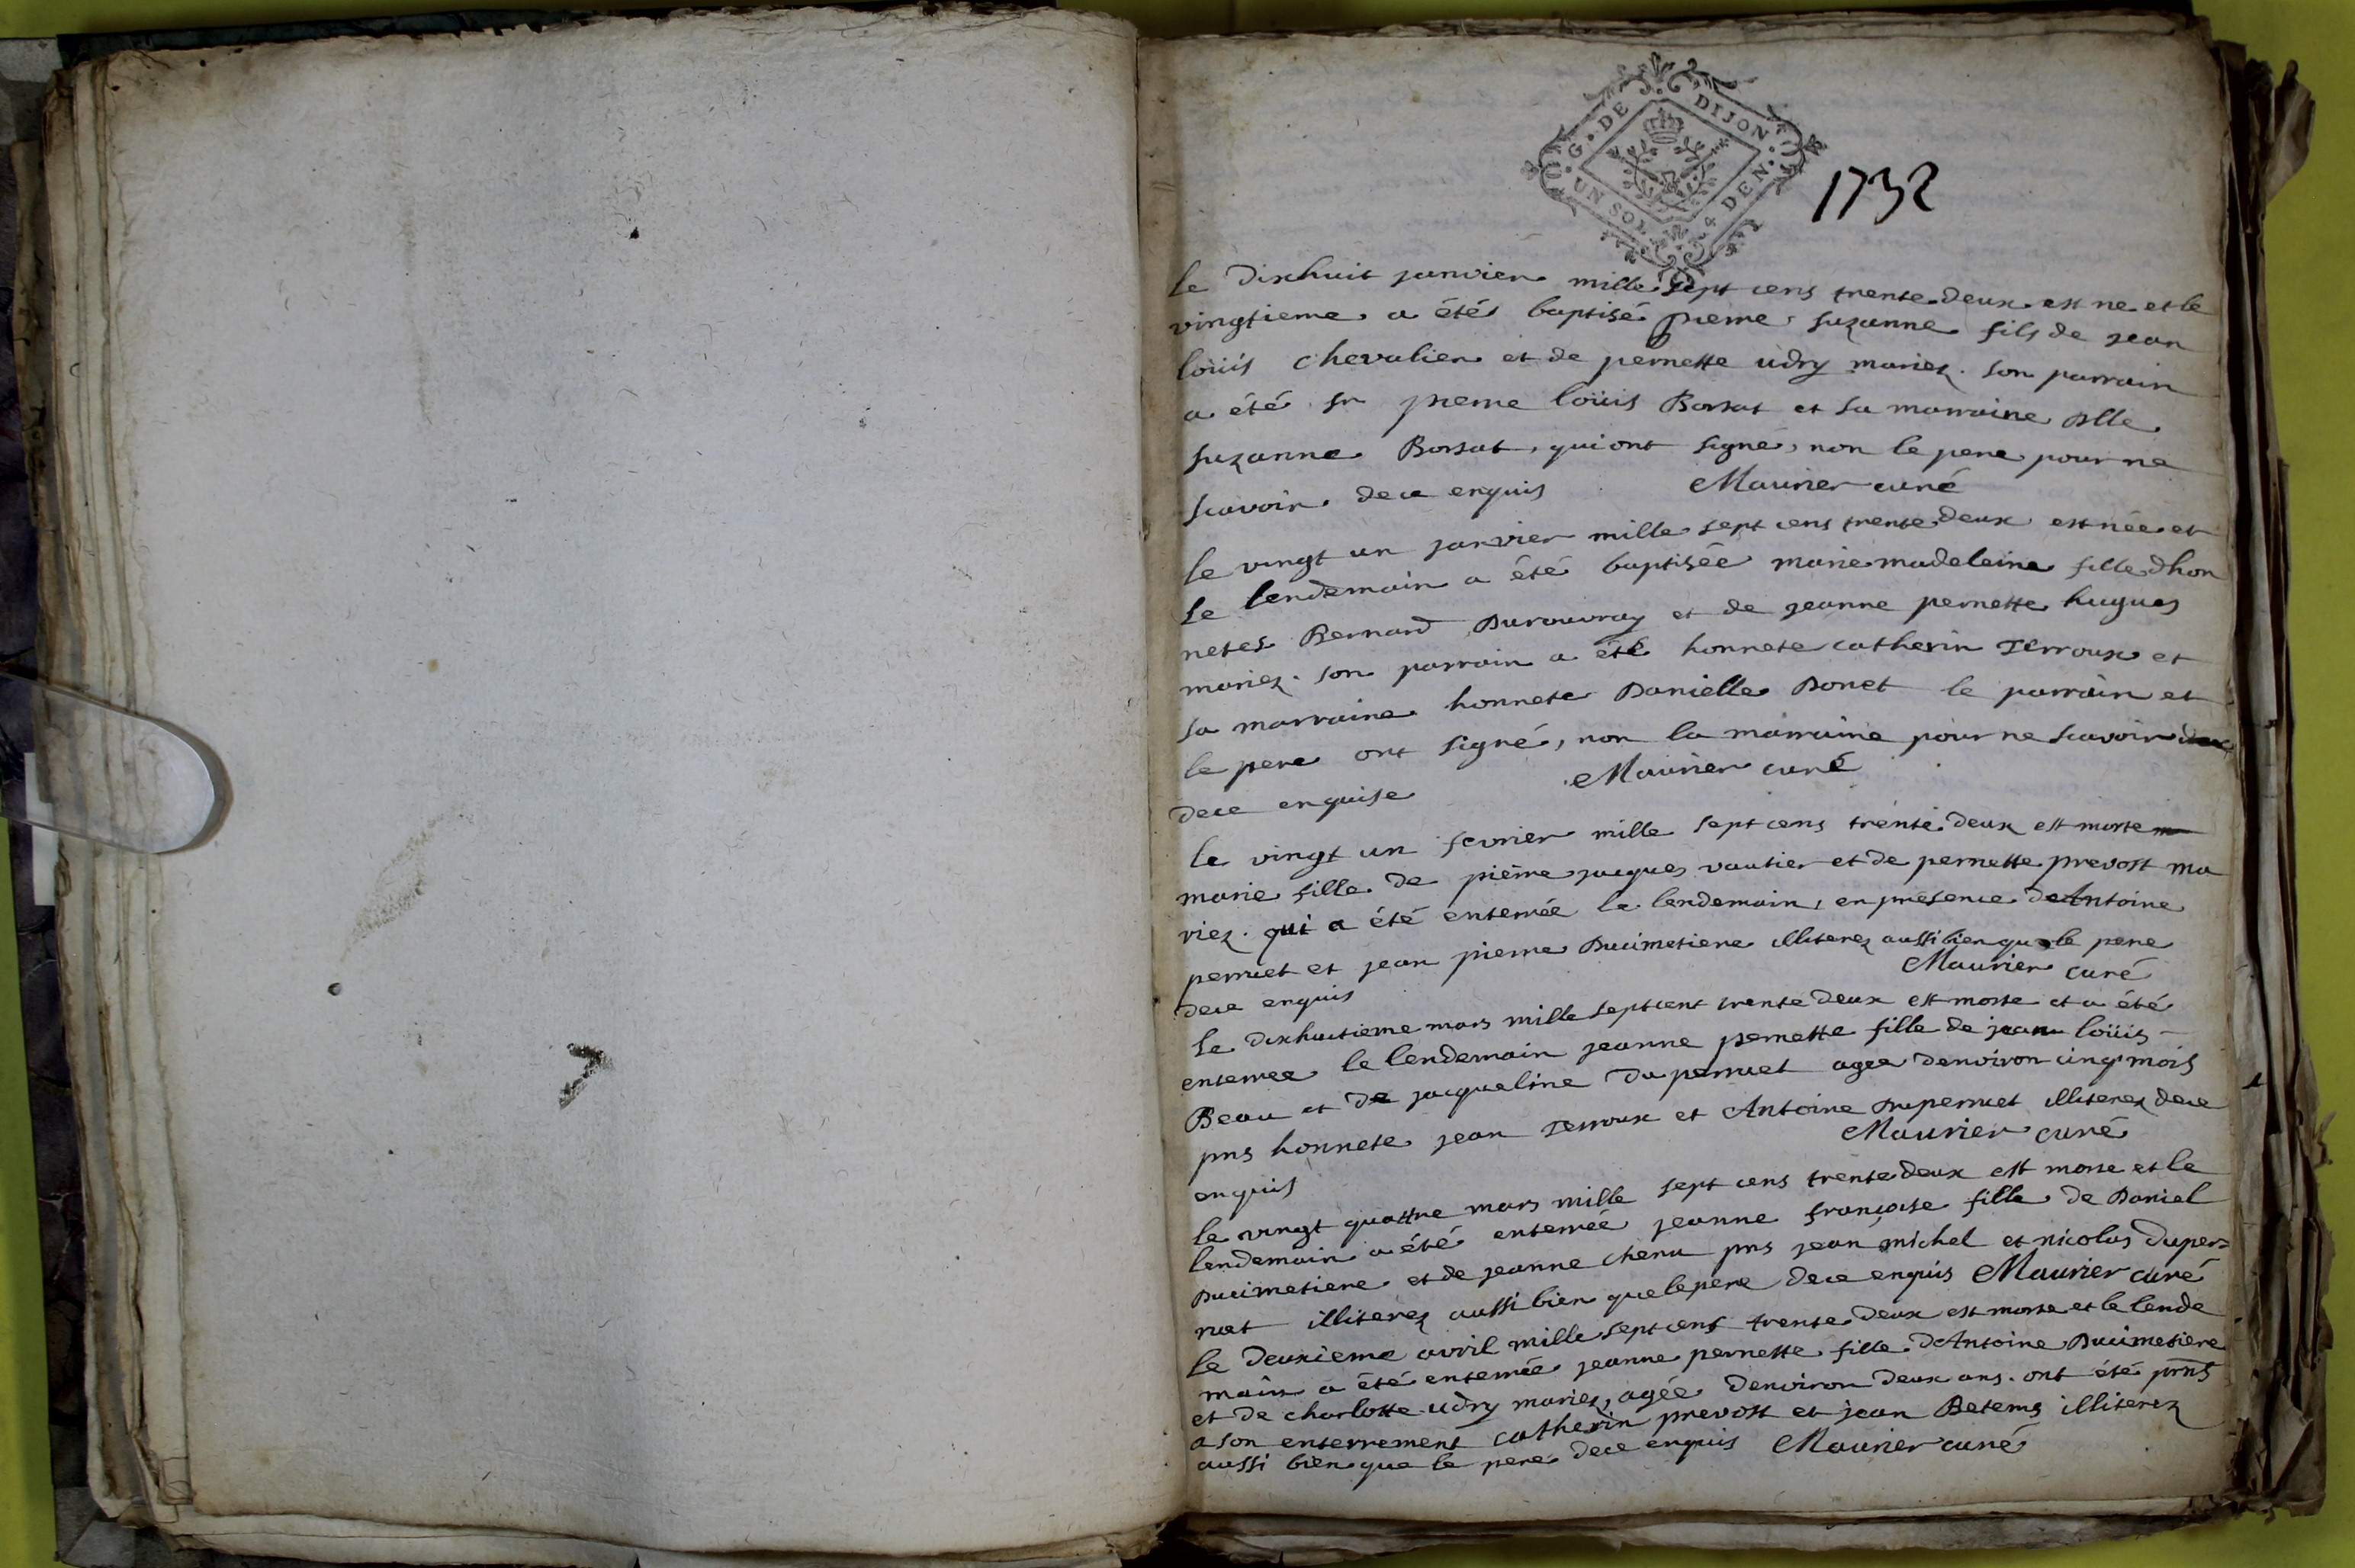 G. DE DIJON
UN SOL 4 DEN.
1732
le dixhuit janvier mille sept cens trente deux est ne et le
vingtieme a étés baptisé pierre suzanne fils de jean
loüis chevalier et de pernette udry mariez. son parrain
a été sr pierre loüis Borsat et sa marraine Dlle
suzanne Borsat, qui ont signé, non le pere pour ne
scavoir dece enquis Maurier curé
le vingt un janvier mille sept cens trente deux est née et
le lendemain a été baptisée marie madeleine fille dhon
netes Bernard Durouvray et de jeanne pernette hugues
mariez. son parrain a été honnete catherin Terroux et
sa marraine honnete Danielle Donet le parrain et
le pere ont signé, non la marraine pour ne scavoir
dece enquise Maurier curé
le vingt un fevrier mille sept cens trente deux est morte
marie fille de pierre jacques vautier et de pernette prevost ma
riez. qui a été enterrée le lendemain, en presence deAntoine
perruet et jean pierre Ducimetiere illiterez aussi bien que le pere
dece enquis Maurier curé
le dixhuitieme mars mille sept cent trente deux est morte et a été
enterree le lendemain jeanne pernette fille de jean loüis
Beau et de jacqueline du perruet agee denviron cinq mois
pns honnete jean Terroux et Antoine Duperruet illiterez dece
enquis Maurier curé
le vingt quattre mars mille sept cens trente deux est morte et le
lendemain a été enterrée jeanne françoise fille de Daniel
Ducimetiere et de jeanne chenu pns jean michel et nicolas duper=
ruet illiterez aussi bien que le pere dece enquis Maurier curé
le deuxieme avril mille sept cens trente deux est morte et le lende
main a été enterrée jeanne pernette fille dAntoine Ducimetiere
et de charlotte udry mariez, agée denviron deux ans. ont été pnts
a son enterrement catherin prevost et jean Betems illiterez
aussi bien que le pere dece enquis Maurier curé